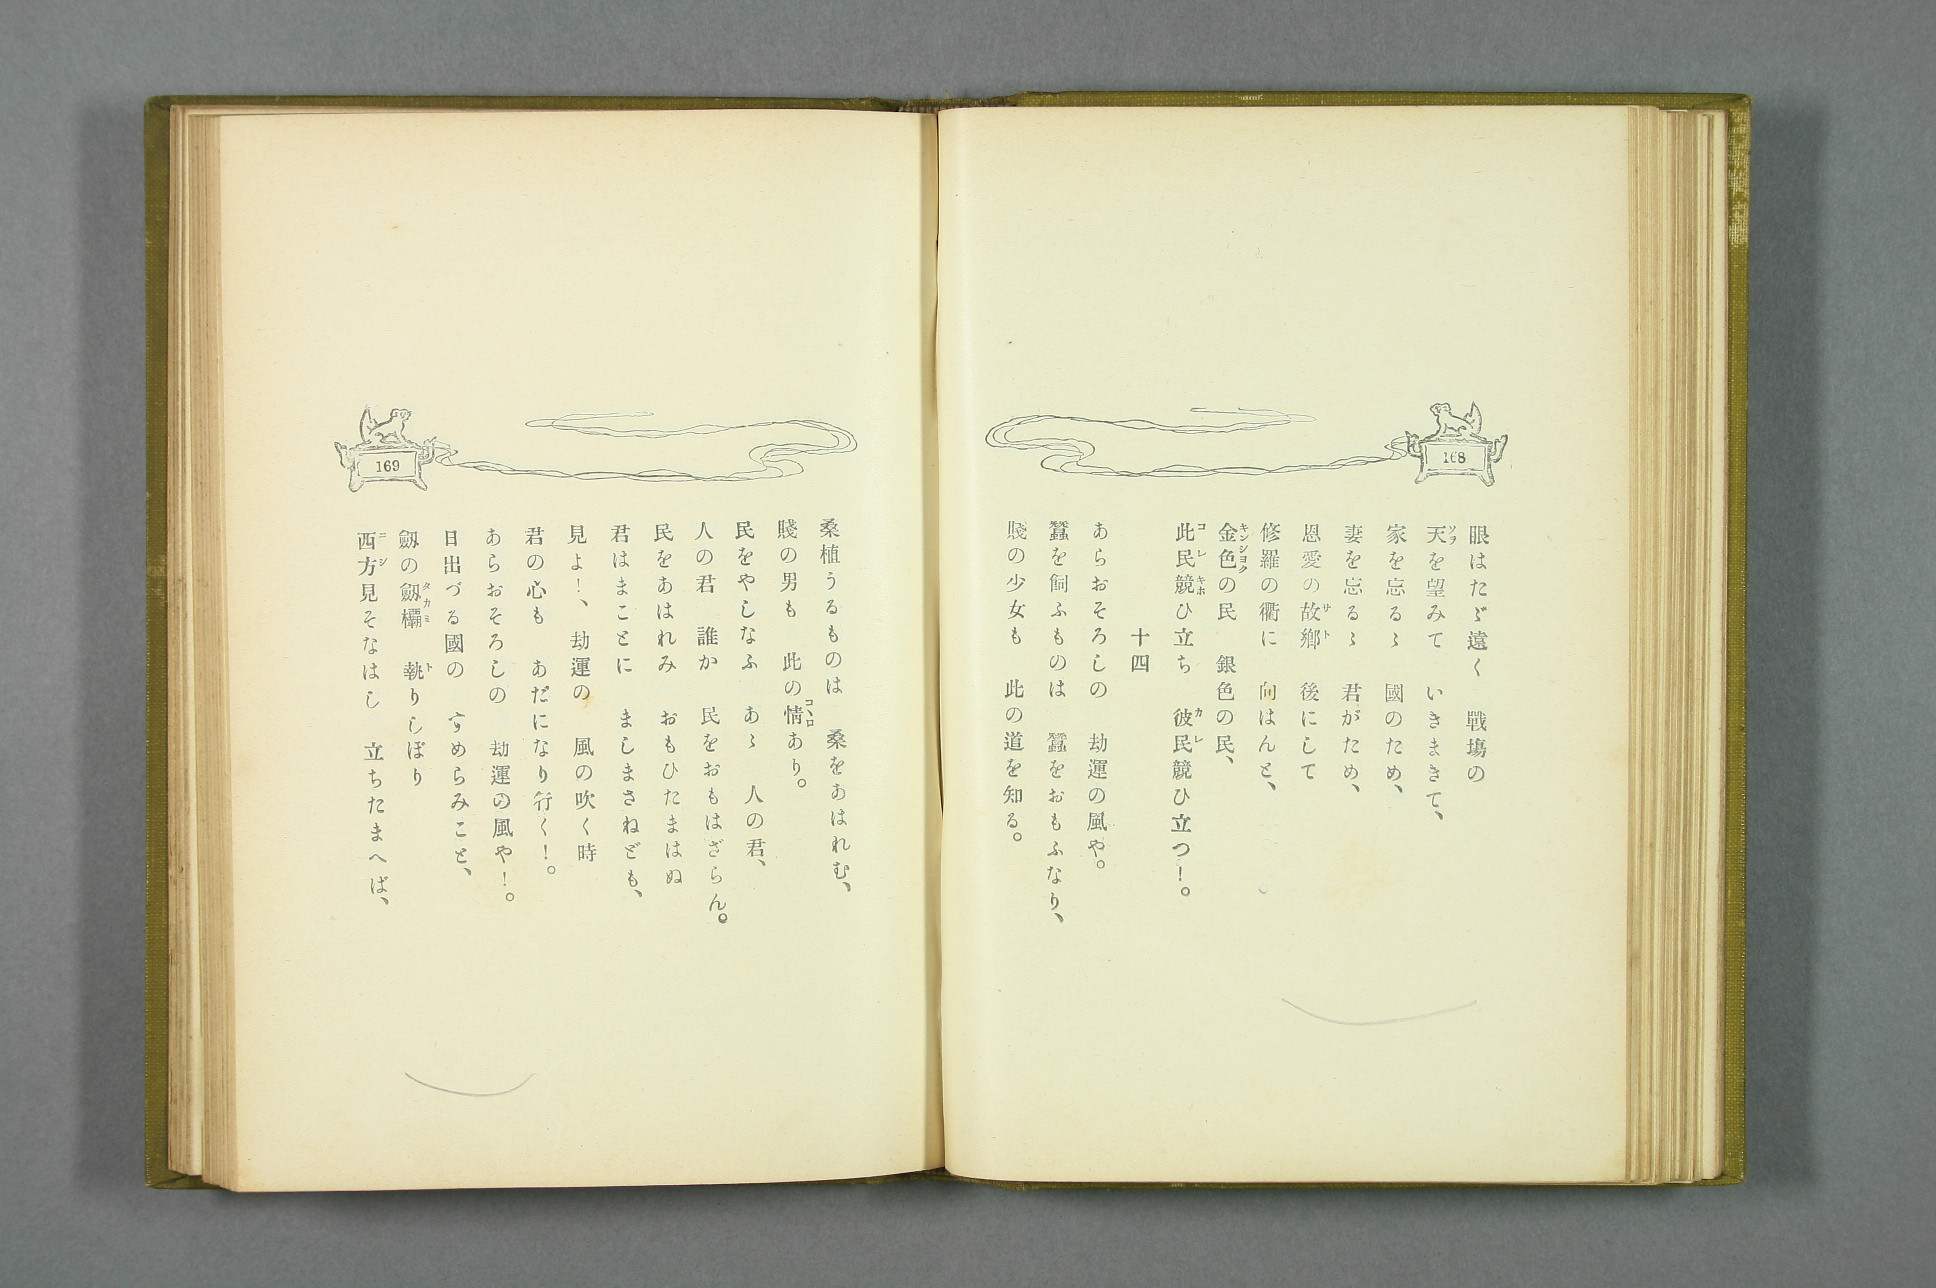 168
眼はたゞ遠く　戰塲の
天を望みて　いきまきて、
家を忘るゝ　國のため、
妻を忘るゝ　君がため、
恩愛の故鄕　後にして
修羅の衢に　向はんと、
金色の民　銀色の民、
此民競ひ立ち　彼民競ひ立つ！。
十四
あらおそろしの　劫運の風や。
蠶を飼ふものは　蠶をおもふなり、
賤の少女も　此の道を知る。
169
桑植うるものは　桑をあはれむ、
賤の男も　此の情あり。
民をやしなふ　あゝ　人の君、
人の君　誰か　民をおもはざらん。
民をあはれみ　おもひたまはぬ
君はまことに　ましまさねども、
見よ！、　劫運の　風の吹く時
君の心も　あだになり行く！。
あらおそろしの　劫運の風や！。
日出づる國の　すめらみこと、
劔の劔欛　執りしぼり
西方見そなはし　立ちたまへば、